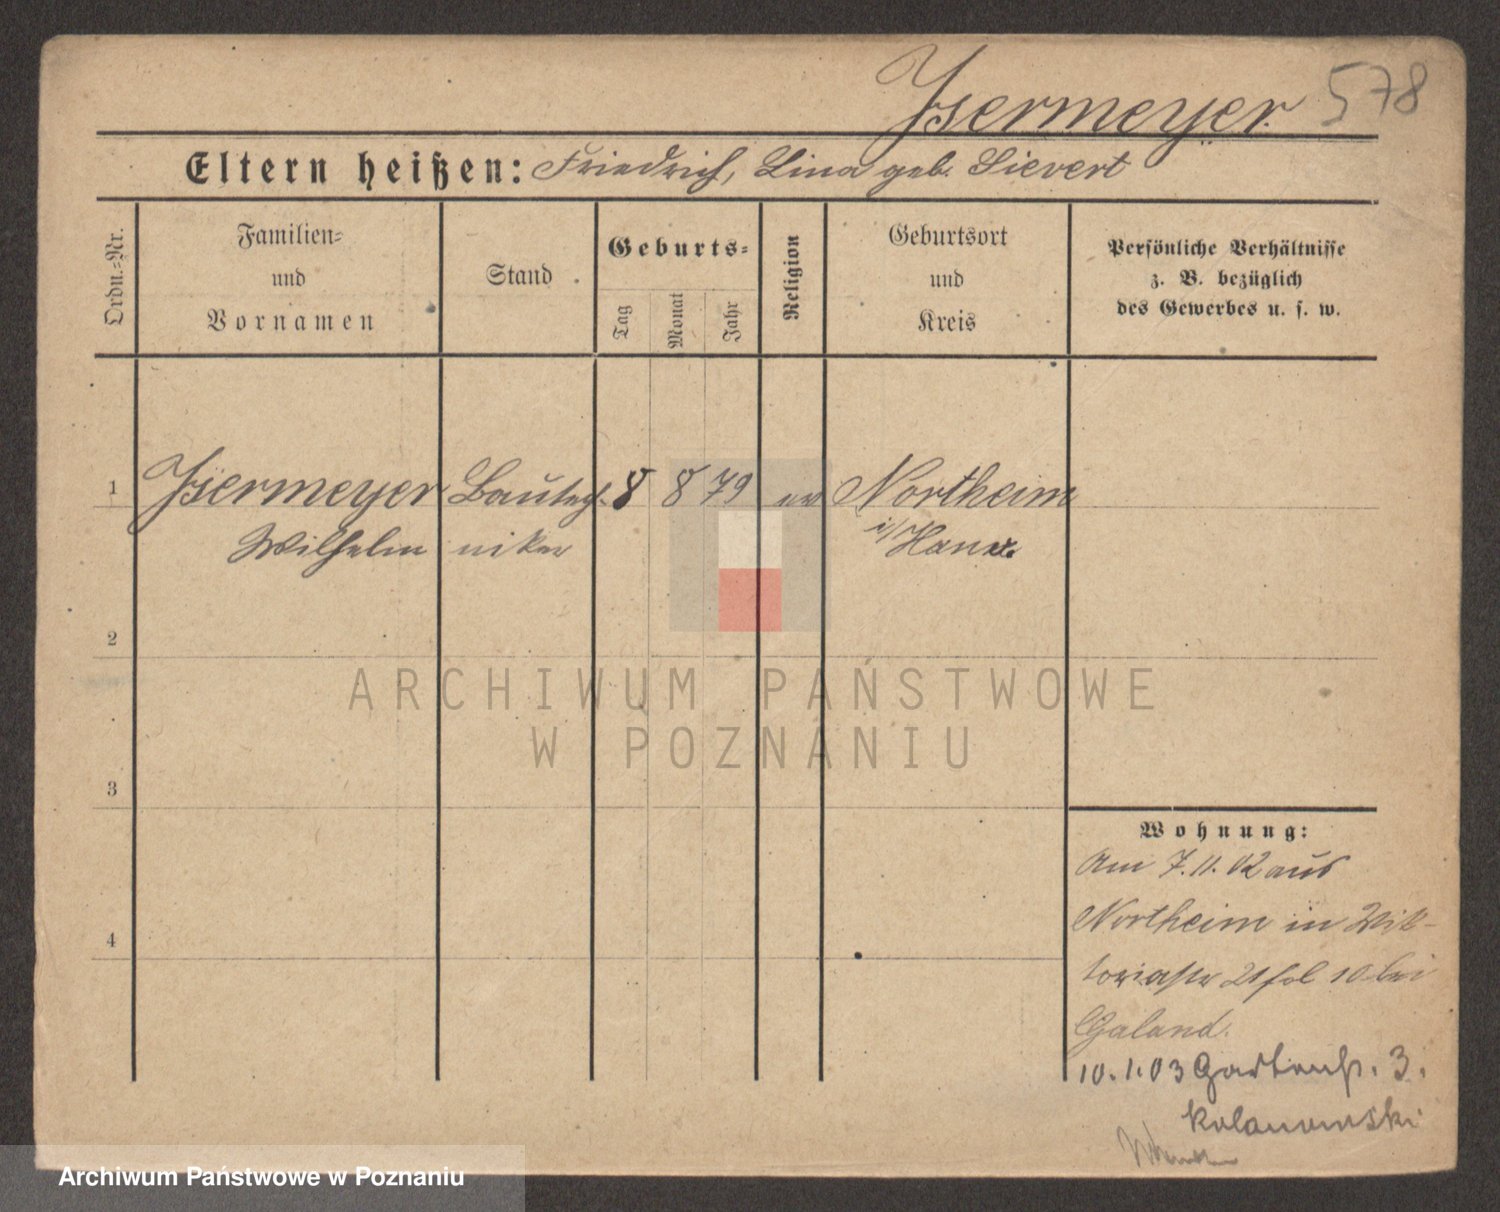 Isermeyer 578
Eltern heißen: Friedrich, Lina geb. Sievert
Ordn.=Nr.
Familien=
und
Vornamen
Stand
Geburts=
Tag
Monat
Jahr
Religion
Geburtsort
und
Kreis
Persönliche Verhältnisse
z. B. bezüglich
des Gewerbes u. s. w.
1 Isermeyer Bautech- 8 8 79 ev Northeim
Wilhelm niker i/Hann.
2
3
4
Wohnung:
Am 7.11.02 aus
Northeim in Vik-
toriastr 21 fol 10 bei
Galand.
10.1.03 Gartenstr. 3.
Kolanowski
ARCHIWUM PAŃSTWOWE
W POZNANIU
Archiwum Państwowe w Poznaniu